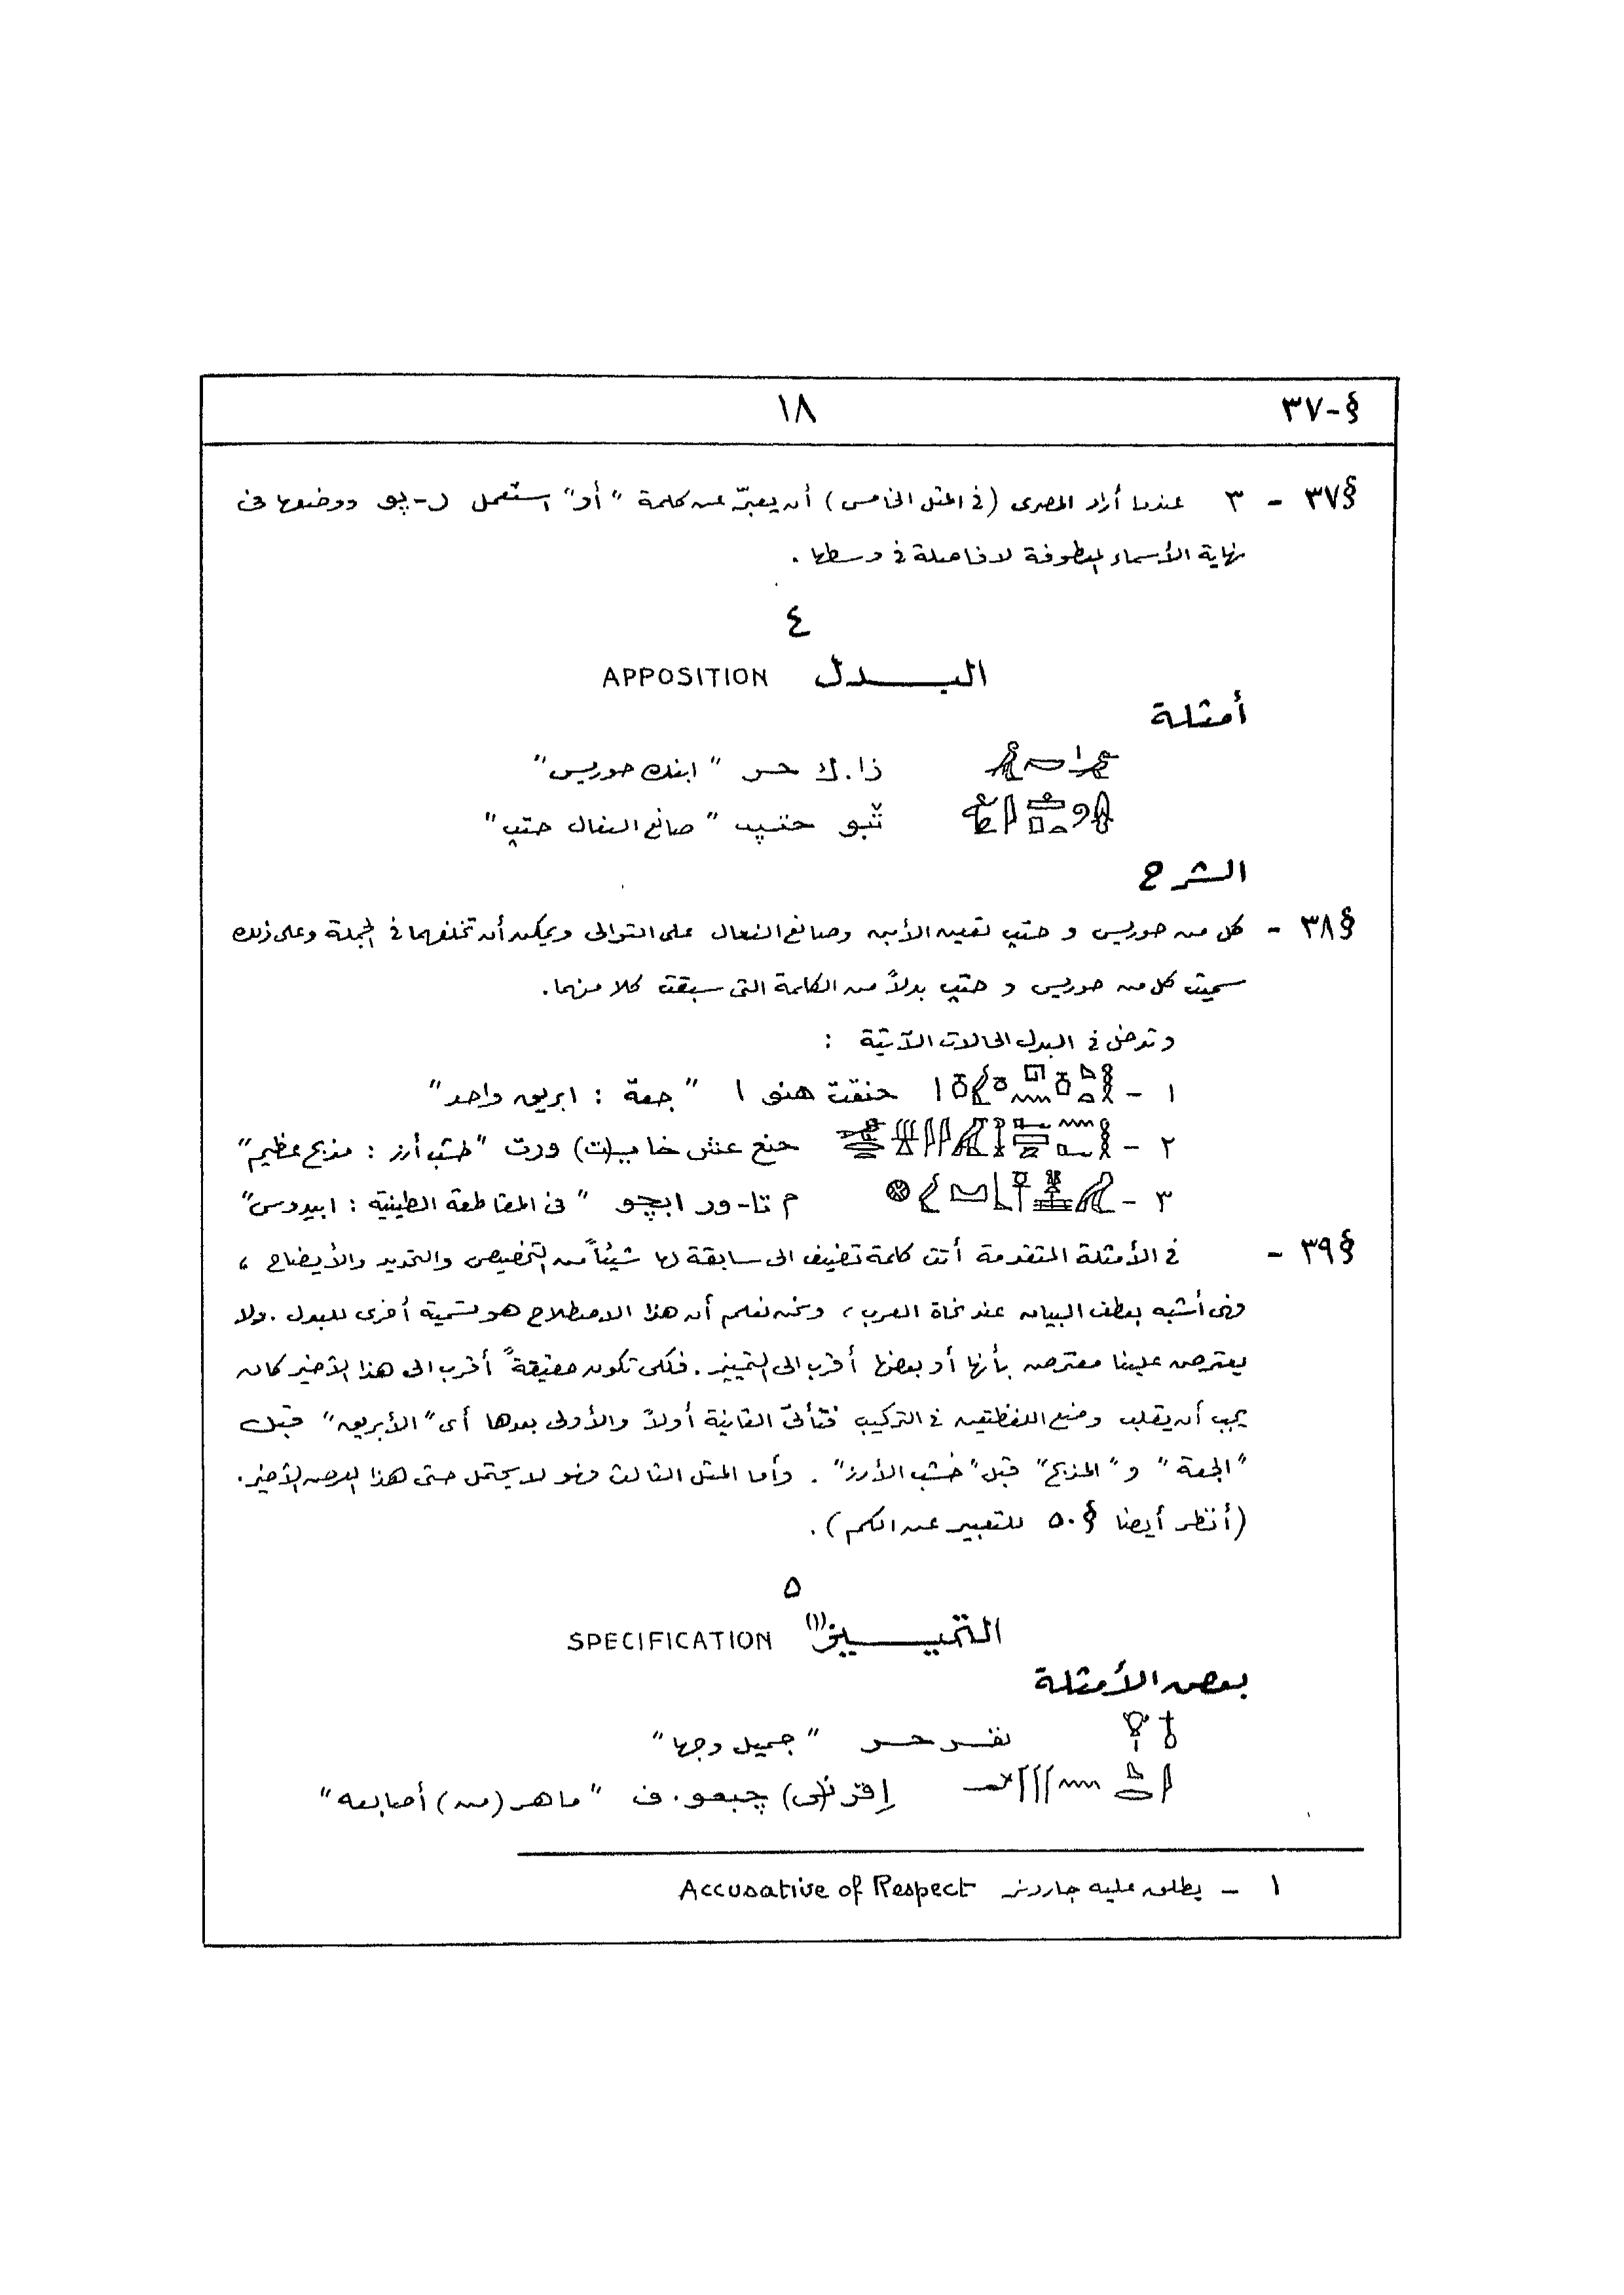 §-٣٧ ١٨
§٣٧ - ٣ عندما أراد المصرى (فى المثل الخامس) أن يعبّر عن كلمة "أو" استعمل ر-پو ووضعها فى
نهاية الأسماء المعطوفة لا فاصلة فى وسطها .
٤
البـــدل APPOSITION
أمثلة
ذا.ك حر "ابنك حوريس"
ثبو حتپ "صانع النعال حتپ"
الشرح
§٣٨ - كل من حوريس و حتپ تعين الأبن وصانع النعال على التوالى ويمكن أن تخلفهما فى الجملة وعلى ذلك
سميت كل من حوريس و حتپ بدلاً من الكلمة التى سبقت كلا منهما.
وتدخل فى البدل الحالات الآتية :
١ - حنقت هنو ١ "جعة : ابريق واحد"
٢ - حنع عش خاي(ت) ورت "خشب أرز : مذبح عظيم"
٣ - م تا-ور ابچو "فى المقاطعة الطينية : ابيدوس"
§٣٩ - فى الأمثلة المتقدمة أتت كلمة تضيف الى سابقة لها شيئاً من التخصيص والتحديد والأيضاح ،
وهى أشبه بعطف البيان عند نحاة العرب ، ونحن نعلم أن هذا الاصطلاح هو تسمية أخرى للبدل . ولا
يعترض علينا معترض بأنها أو بعضها أقرب الى التمييز . فلكى تكون حقيقة ً أقرب الى هذا الأخير كان
يجب أن يقلب وضع اللفظتين فى التركيب فتأتى الثانية أولاً والأولى بعدها أى "الأبريق" قبل
"الجعة" و "المذبح" قبل "خشب الأرز" . وأما المثل الثالث فهو لا يحتمل حتى هذا الفرض الأخير.
(أنظر أيضا §٥٠ للتعبير عن الكم) .
٥
التميـــيز(١) SPECIFICATION
بعض الأمثلة
نفر حر "جميل وجها"
إقر ن(ى) چبعو.ف "ماهر (من) أصابعه"
١ - يطلق عليه جاردنر Accusative of Respect